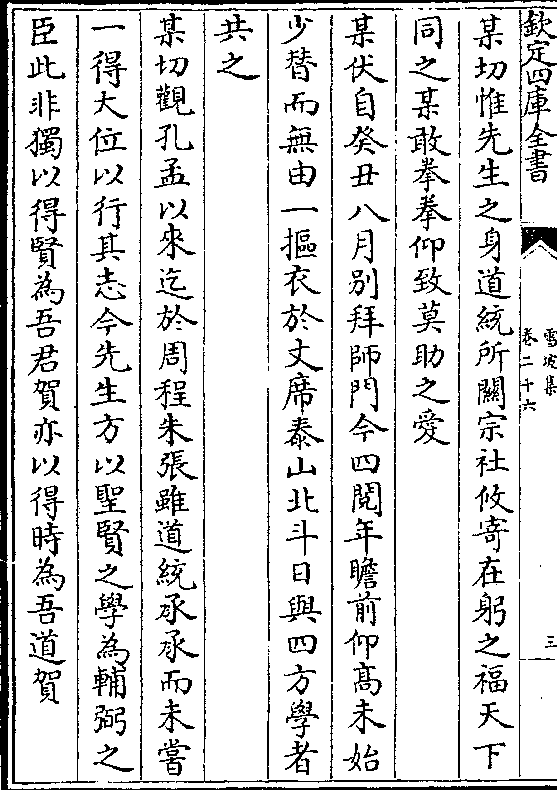 欽定四庫全書
雪坡集
卷二十六
三
某切惟先生之身道統所關宗社攸寄在躬之福天下
同之某敢拳拳仰致莫助之愛
某伏自癸丑八月别拜師門今四閱年瞻前仰髙未始
少替而無由一摳衣於丈席泰山北斗日與四方學者
共之
某切觀孔孟以來迄於周程朱張雖道統承承而未嘗
一得大位以行其志今先生方以聖賢之學為輔弼之
臣此非獨以得賢為吾君賀亦以得時為吾道賀